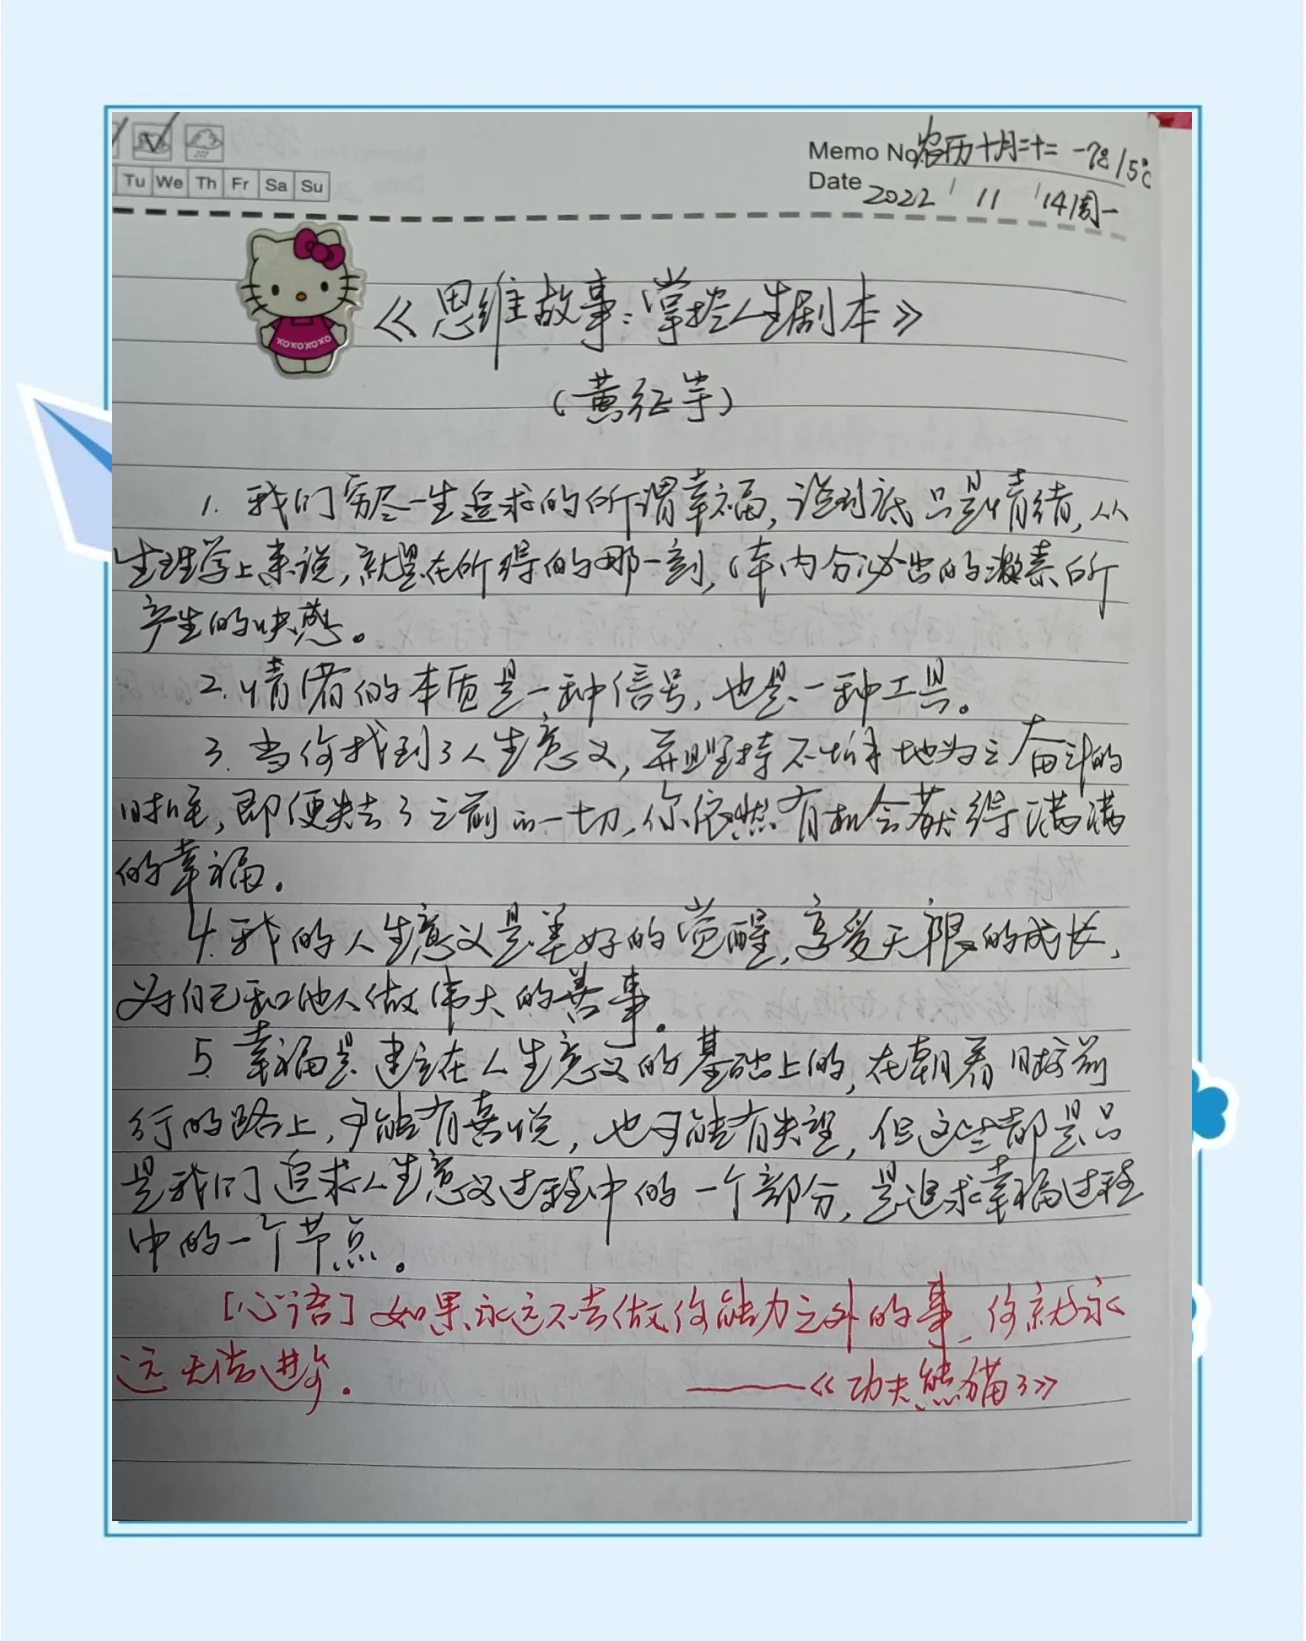 Memo No. 农历十月二十一 -7℃/5℃
Tu We Th Fr Sa Su
Date 2022 / 11 / 14/周一
XOXOXOXO
《思维故事:掌控人生剧本》
(黄征宇)
1. 我们穷尽一生追求的所谓幸福,说到底只是情绪,从
生理学上来说,就是在所得的那一刻,体内分泌出的激素所
产生的快感。
2. 情绪的本质是一种信号,也是一种工具。
3. 当你找到了人生意义,并且坚持不懈地为之奋斗的
时候,即便失去了之前的一切,你依然有机会获得满满
的幸福。
4. 我的人生意义是美好的觉醒,享受无限的成长,
为自己和他人做伟大的善事。
5. 幸福是建立在人生意义的基础上的,在朝着目标前
行的路上,可能有喜悦,也可能有失望,但这些都是只
是我们追求人生意义过程中的一个部分,是追求幸福过程
中的一个节点。
[心语]如果永远不去做你能力之外的事,你就永
远无法进步。 ——《功夫熊猫3》